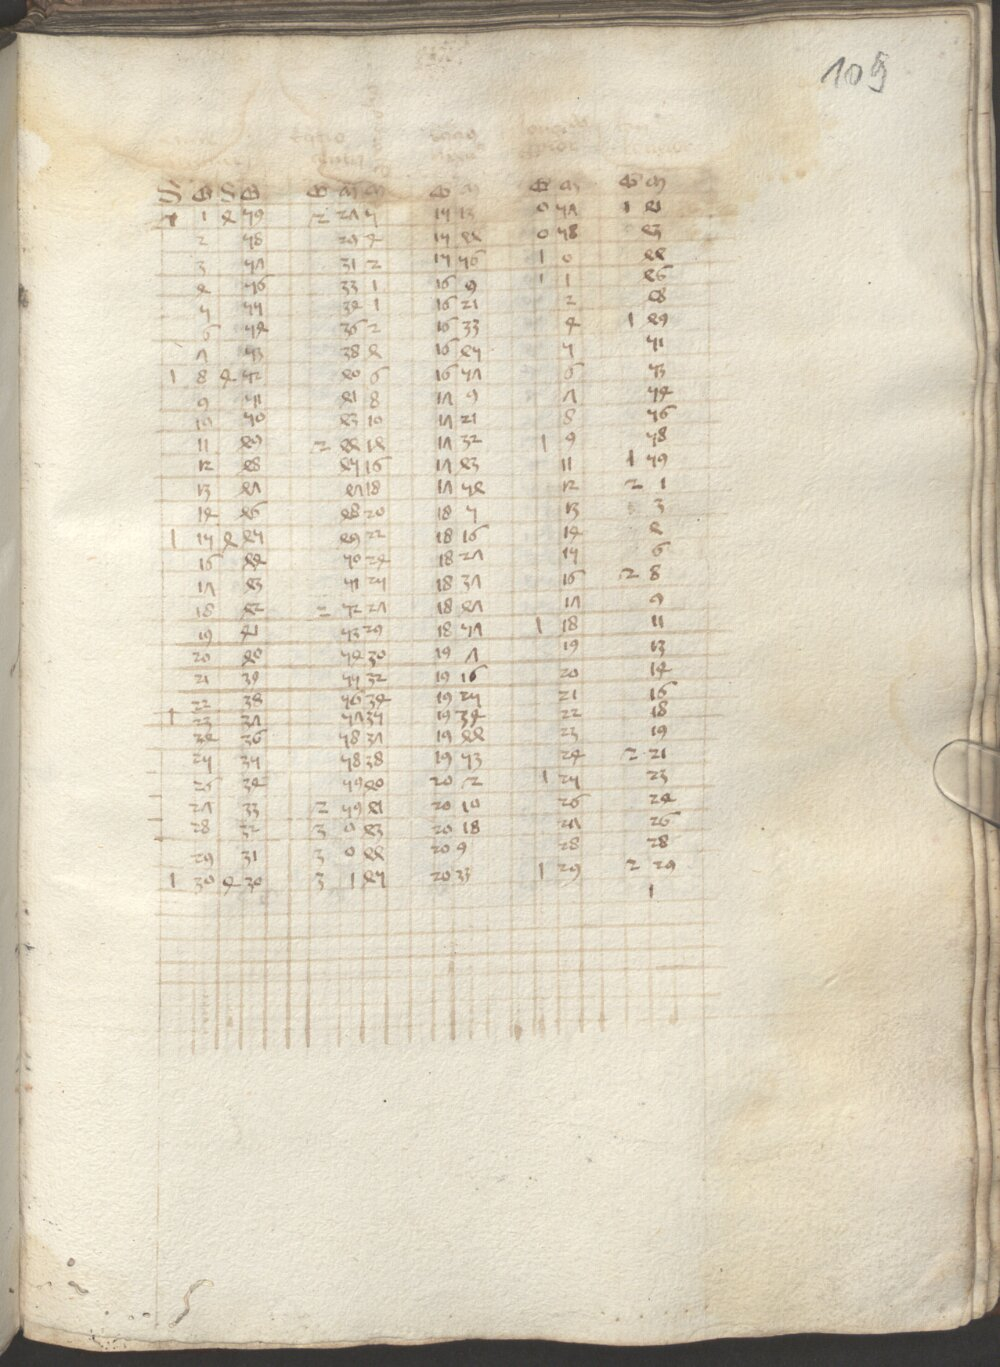 105
S G S G G m m G m G m G m
1 1 4 59 2 27 5 15 13 0 57 1 41
2 58 29 4 15 44 0 58 43
3 57 31 2 15 56 1 0 44
4 56 33 1 16 9 1 1 46
5 55 34 1 16 21 2 48
6 54 36 2 16 33 4 1 49
7 53 38 4 16 45 5 51
1 8 4 52 40 6 16 57 6 53
9 51 41 8 17 9 7 54
10 50 43 10 17 21 8 56
11 49 2 44 14 17 32 1 9 58
12 48 45 16 17 43 11 1 59
13 47 47 18 17 54 12 2 1
14 46 48 20 18 5 13 3
1 15 4 45 49 22 18 16 14 4
16 44 50 24 18 27 15 6
17 43 51 25 18 37 16 2 8
18 42 2 52 27 18 47 17 9
19 41 53 29 18 57 1 18 11
20 40 54 30 19 7 19 13
21 39 55 32 19 16 20 14
22 38 56 34 19 25 21 16
1 23 37 57 35 19 34 22 18
24 36 58 37 19 44 23 19
25 35 58 38 19 53 24 2 21
26 34 59 40 20 2 1 25 23
27 33 2 59 41 20 10 26 24
28 32 3 0 43 20 18 27 26
29 31 3 0 44 20 9 28 28
1 30 4 30 3 1 45 20 33 1 29 2 29
1